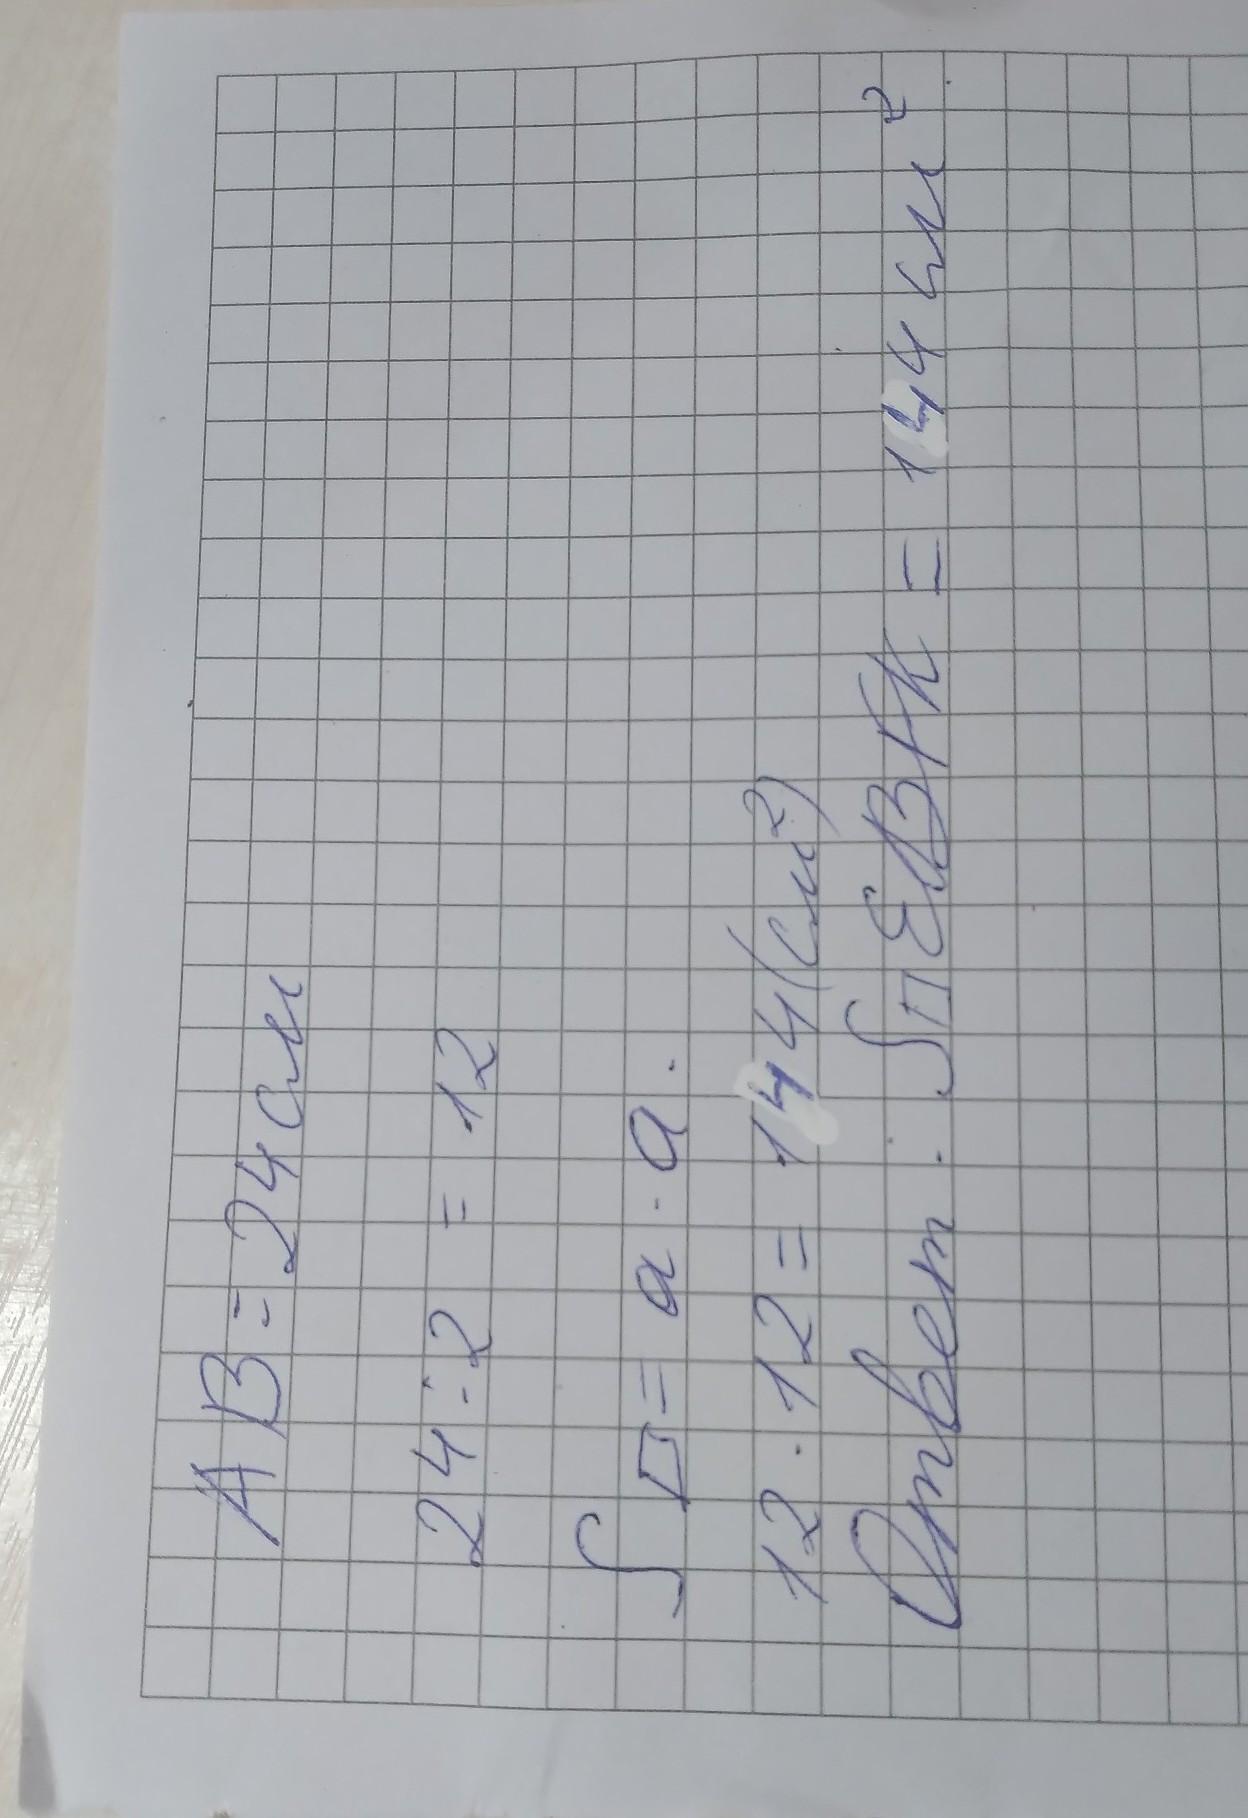 AB = 24 см
24 : 2 = 12
S□ = a · a.
12 · 12 = 144 (см²)
Ответ: SпEBFK = 144 см²